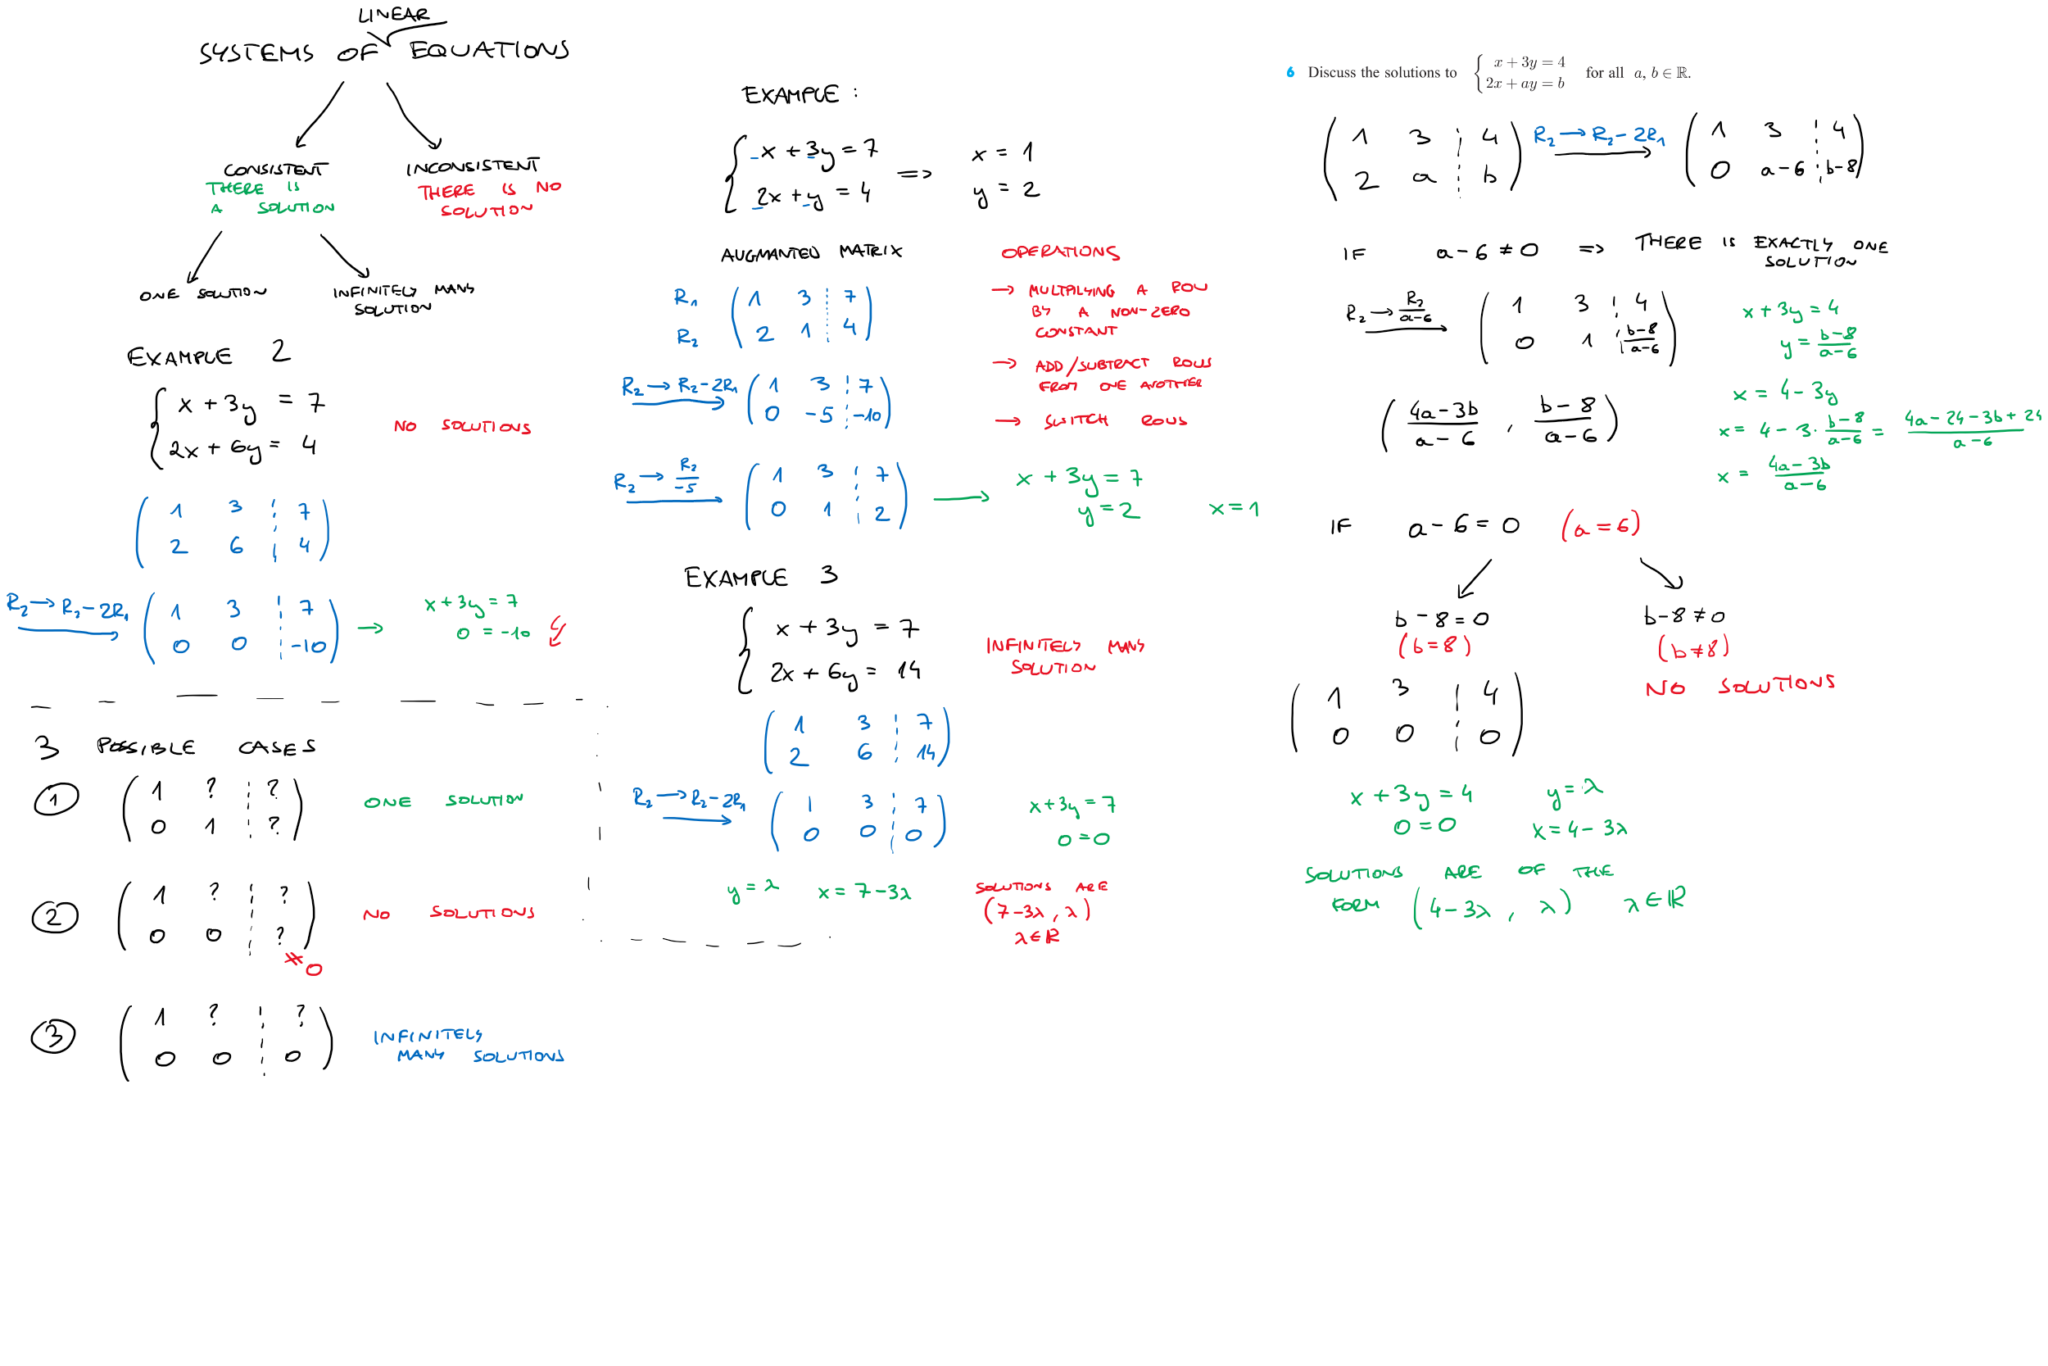 LINEAR
SYSTEMS OF EQUATIONS
CONSISTENT
THERE IS
A SOLUTION
INCONSISTENT
THERE IS NO
SOLUTION
ONE SOLUTION
INFINITELY MANY
SOLUTION
EXAMPLE 2
x + 3y = 7
2x + 6y = 4
NO SOLUTIONS
1 3 7
2 6 4
R₂ → R₂ - 2R₁
1 3 7
0 0 -10
→
x + 3y = 7
0 = -10
3 POSSIBLE CASES
① 1 ? ?
0 1 ?
ONE SOLUTION
② 1 ? ?
0 0 ?
≠ 0
NO SOLUTIONS
③ 1 ? ?
0 0 0
INFINITELY
MANY SOLUTIONS
EXAMPLE :
x + 3y = 7
2x + y = 4
=>
x = 1
y = 2
AUGMANTED MATRIX
R₁ 1 3 7
R₂ 2 1 4
R₂ → R₂ - 2R₁
1 3 7
0 -5 -10
R₂ → R₂/-5
1 3 7
0 1 2
→
x + 3y = 7
y = 2 x = 1
OPERATIONS
→ MULTIPLYING A ROW
BY A NON-ZERO
CONSTANT
→ ADD/SUBTRACT ROWS
FROM ONE ANOTHER
→ SWITCH ROWS
EXAMPLE 3
x + 3y = 7
2x + 6y = 14
INFINITELY MANY
SOLUTION
1 3 7
2 6 14
R₂ → R₂ - 2R₁
1 3 7
0 0 0
x + 3y = 7
0 = 0
y = λ x = 7 - 3λ
SOLUTIONS ARE
(7 - 3λ, λ)
λ ∈ ℝ
6 Discuss the solutions to { x + 3y = 4
2x + ay = b for all a, b ∈ ℝ.
1 3 4
2 a b
R₂ → R₂ - 2R₁
1 3 4
0 a-6 b-8
IF a - 6 ≠ 0 => THERE IS EXACTLY ONE
SOLUTION
R₂ → R₂/(a-6)
1 3 4
0 1 (b-8)/(a-6)
x + 3y = 4
y = (b-8)/(a-6)
x = 4 - 3y
x = 4 - 3 · (b-8)/(a-6) = (4a - 24 - 3b + 24)/(a-6)
x = (4a - 3b)/(a-6)
((4a - 3b)/(a - 6), (b - 8)/(a - 6))
IF a - 6 = 0 (a = 6)
b - 8 = 0
(b = 8)
b - 8 ≠ 0
(b ≠ 8)
NO SOLUTIONS
1 3 4
0 0 0
x + 3y = 4
0 = 0
y = λ
x = 4 - 3λ
SOLUTIONS ARE OF THE
FORM (4 - 3λ, λ) λ ∈ ℝ